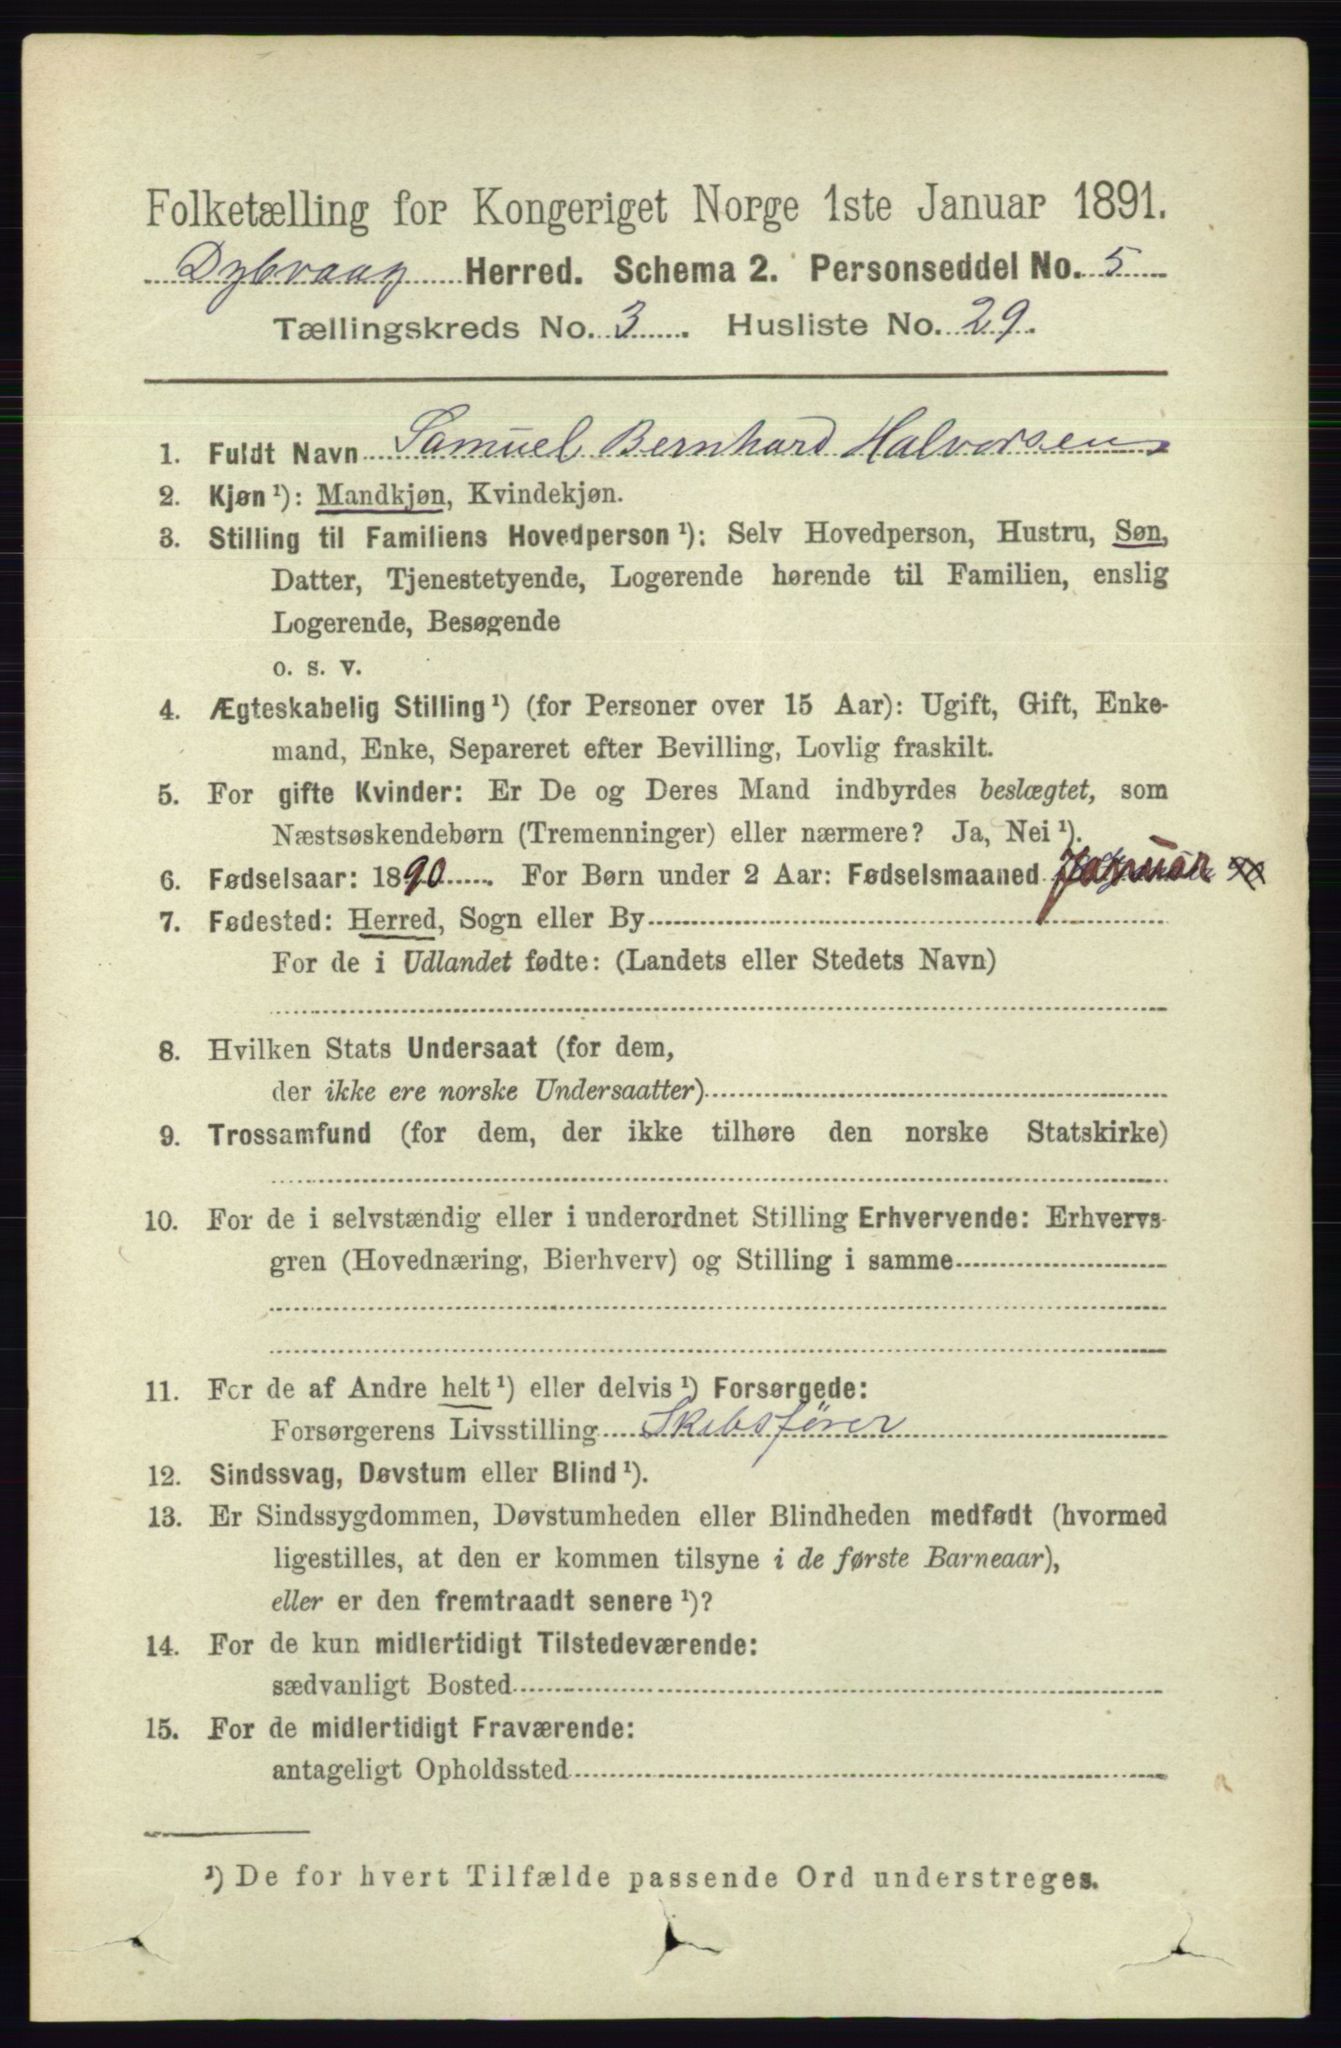 Folketælling for Kongeriget Norge 1ste Januar 1891.
Dybvaag Herred. Schema 2. Personseddel No. 5
Tællingskreds No. 3. Husliste No. 29.
1. Fuldt Navn Samuel Bernhard Halvorsen
2. Kjøn ¹): Mandkjøn, Kvindekjøn.
3. Stilling til Familiens Hovedperson ¹): Selv Hovedperson, Hustru, Søn,
Datter, Tjenestetyende, Logerende hørende til Familien, enslig
Logerende, Besøgende
o. s. v.
4. Ægteskabelig Stilling ¹) (for Personer over 15 Aar): Ugift, Gift, Enke-
mand, Enke, Separeret efter Bevilling, Lovlig fraskilt.
5. For gifte Kvinder: Er De og Deres Mand indbyrdes beslægtet, som
Næstsøskendebørn (Tremenninger) eller nærmere? Ja, Nei ¹).
6. Fødselsaar: 1890. For Børn under 2 Aar: Fødselsmaaned Januar
7. Fødested: Herred, Sogn eller By
For de i Udlandet fødte: (Landets eller Stedets Navn)
8. Hvilken Stats Undersaat (for dem,
der ikke ere norske Undersaatter)
9. Trossamfund (for dem, der ikke tilhøre den norske Statskirke)
10. For de i selvstændig eller i underordnet Stilling Erhvervende: Erhvervs-
gren (Hovednæring, Bierhverv) og Stilling i samme
11. For de af Andre helt ¹) eller delvis ¹) Forsørgede:
Forsørgerens Livsstilling Skibsfører
12. Sindssvag, Døvstum eller Blind ¹).
13. Er Sindssygdommen, Døvstumheden eller Blindheden medfødt (hvormed
ligestilles, at den er kommen tilsyne i de første Barneaar),
eller er den fremtraadt senere ¹)?
14. For de kun midlertidigt Tilstedeværende:
sædvanligt Bosted
15. For de midlertidigt Fraværende:
antageligt Opholdssted
¹) De for hvert Tilfælde passende Ord understreges.